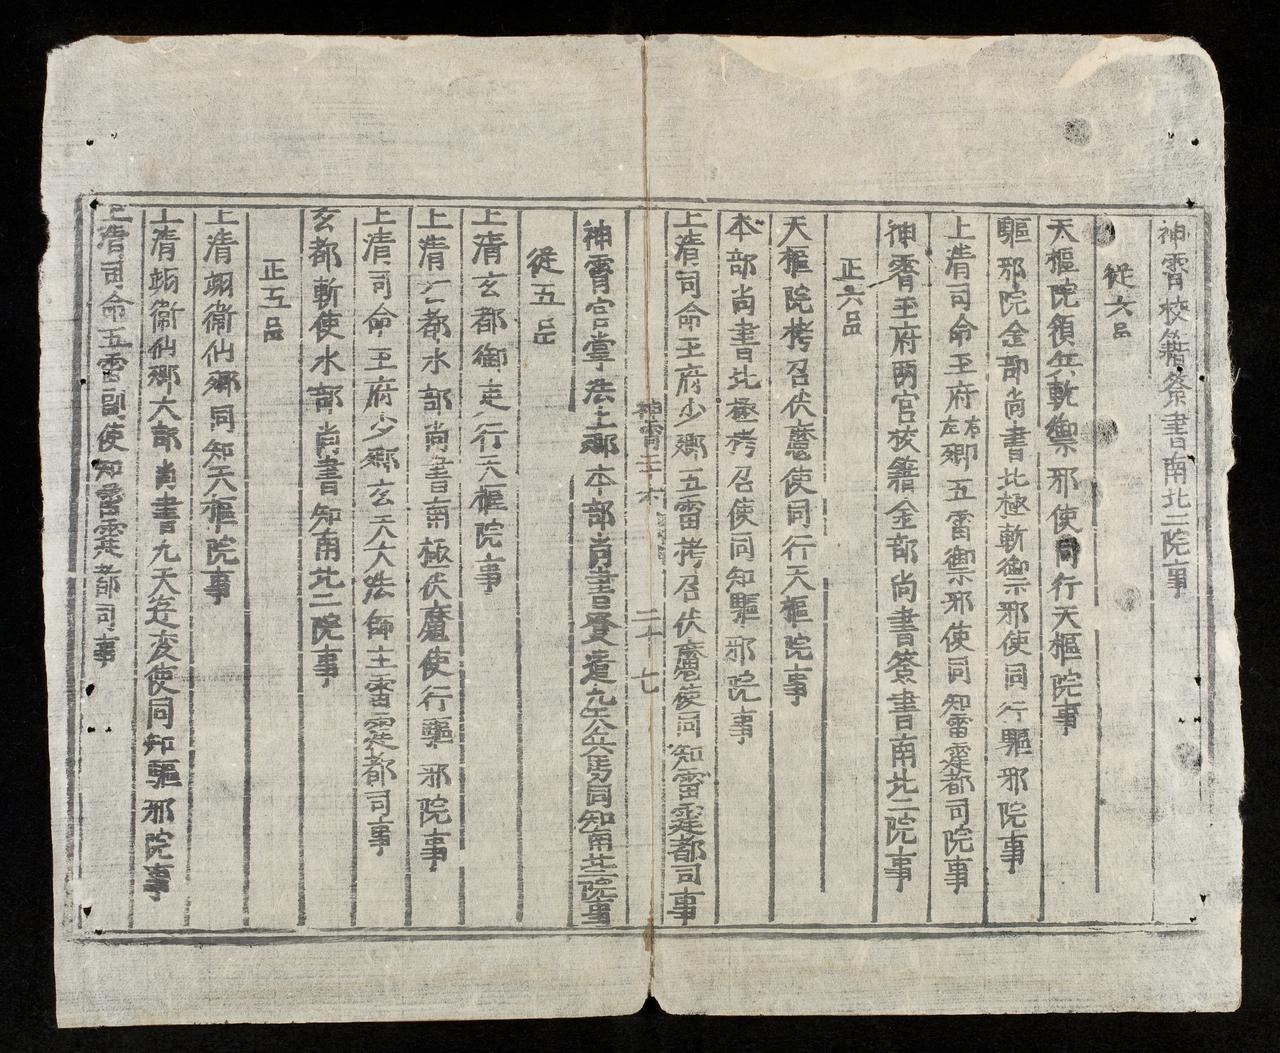 神霄校籍簽書南北二院事
從六品
天樞院領兵斬禦邪使同行天樞院事
驅邪院金部尚書北極斬禦邪使同行驅邪院事
上清司命玉府右左卿五雷禦邪使同知雷霆都司院事
神霄玉府兩宮校籍金部尚書簽書南北二院事
正六品
天樞院栲召伏魔使同行天樞院事
本部尚書北極栲召使同知驅邪院事
上清司命玉府少卿五雷栲召伏魔使同知雷霆都司事
神霄 二十七
神霄宮掌法上卿本部尚書九天兵馬同知南北二院事
從五品
上清玄都御史行天樞院事
上清玄都水部尚書南極伏魔使行驅邪院事
上清司命玉府少卿玄天大法師主雷霆都司事
玄都斬使水部尚書知南北二院事
正五品
上清翊衛仙卿同知天樞院事
上清翊衛仙卿六部尚書九天遊变使同知驅邪院事
上清司命五雷副使知雷霆都司事